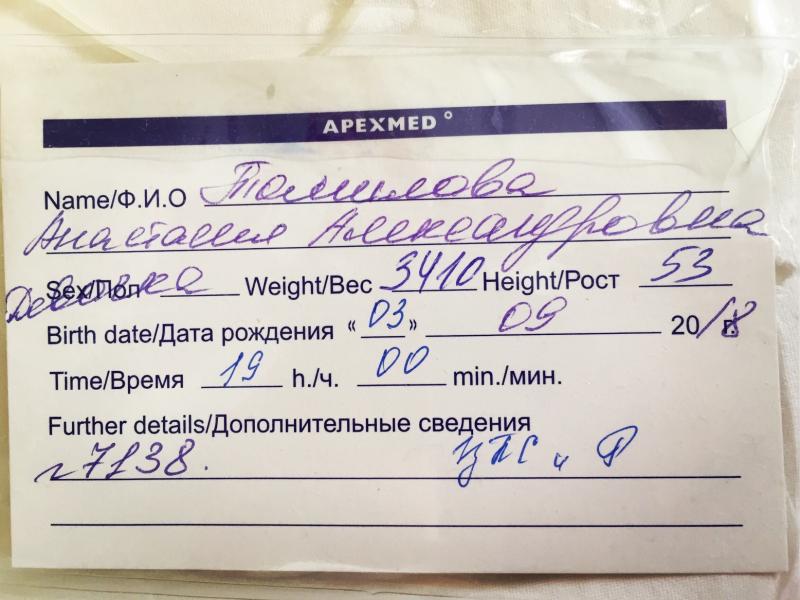 APEXMED°
Name/Ф.И.О Томилова
Анастасия Александровна
Sex/Пол Девочка Weight/Вес 3410 Height/Рост 53
Birth date/Дата рождения « 03 » 09 20/18 г.
Time/Время 19 h./ч. 00 min./мин.
Further details/Дополнительные сведения
7138. ЦПС и Р